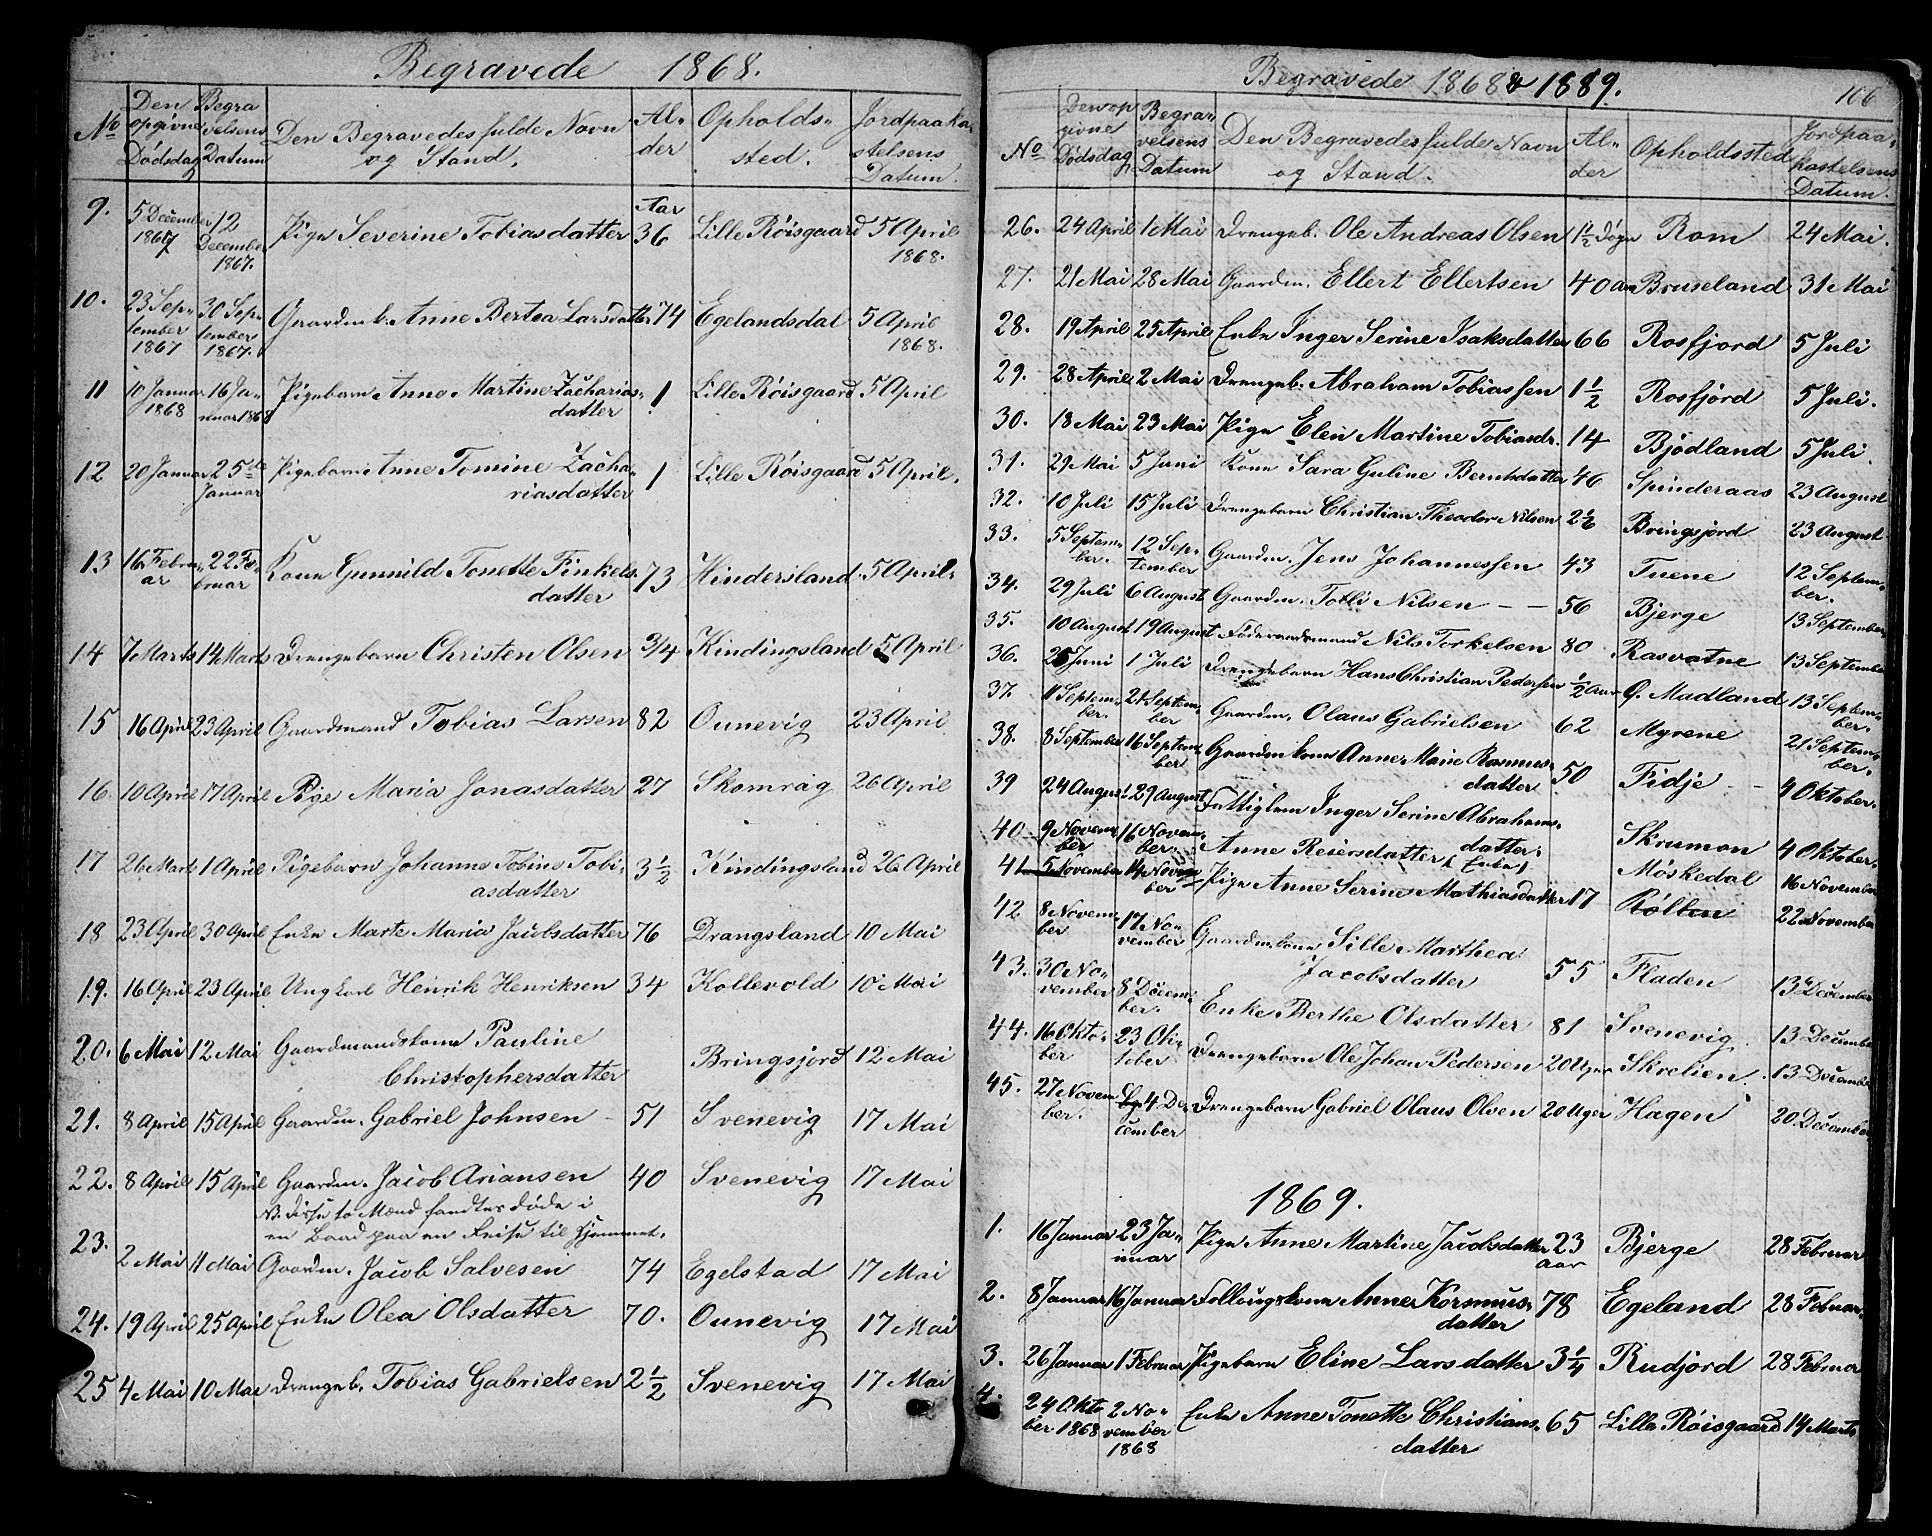 Begravede 1868.
No Den opgivne Dødsdag Begravelsens Datum Den Begravedes fulde Navn og Stand. Alder Opholdssted. Jordpaakastelsens Datum.
9. 5 December 1867 12 December 1867. Pige Severine Tobiasdatter Aar 36 Lille Røisgaard 5 April 1868.
10. 23 September 1867 30 September 1867. Gaardmk. Anne Bertea Larsdatter 74 Egelandsdal 5 April 1868.
11 10 Januar 1868 16 Januar 1868 Pigebarn Anne Martine Zachariasdatter 1 Lille Røisgaard 5 April
12 20 Januar 25de Januar Pigebarn Anne Tomine Zachariasdatter 1 Lille Røisgaard 5 April.
13 16 Februar 22 Februar Kone Gunnild Tonette Finkelsdatter 73 Hindersland 5 April.
14 7 Marts 14 Marts Drengebarn Christen Olsen 3/4 Kindingsland 5 April
15 16 April 23 April Gaardmand Tobias Larsen 82 Ounevig 23 April
16. 10 April 17 April Pige Maria Jonasdatter 27 Skomrag 26 April
17 26 Marts 1 April Pigebarn Johanne Tobine Tobiasdatter 3 1/2 Kindingsland 26 April
18 23 April 30 April Enke Marte Maria Jacobsdatter 76 Drangsland 10 Mai
19. 16 April 23 April Ungkarl Henrik Henriksen 34 Kollevold 10 Mai
20. 6 Mai 12 Mai Gaardmandskone Pauline Christophersdatter Bringsjord 12 Mai
21. 8 April 15 April Gaardm. Gabriel Johnsen 51 Svenevig 17 Mai
22. 8 April 15 April Gaardm. Jacob Ariansen 40 Svenevig 17 Mai
NB. disse to Mænd fandtes døde i
en Baad paa en Reise til Hjemmet.
23. 2 Mai 11 Mai Gaardm. Jacob Salvesen 74 Egelstad 17 Mai
24. 19 April 25 April Enke Olea Olsdatter 70. Ounevig 17 Mai
25 4 Mai 10 Mai Drengeb. Tobias Gabrielsen 2 1/2 Svenevig 17 Mai
Begravede 1868 & 1889. 106
No Den opgivne Dødsdag Begravelsens Datum Den Begravedes fulde Navn og Stand. Alder Opholdssted Jordpaakastelsens Datum.
26. 24 April 1 Mai Drengeb. Ole Andreas Olsen 1 1/2 Døgn Rom 24 Mai.
27. 21 Mai 28 Mai Gaardm. Ellert Ellertsen 40 aar Bruseland 31 Mai
28. 19 April 25 April Enke Inger Serine Isaksdatter 66 Rosfjord 5 Juli
29. 28 April 2 Mai Drengeb. Abraham Tobiassen 1 1/2 Rosfjord 5 Juli.
30. 18 Mai 23 Mai Pige Elen Martine Tobiasdr. 14 Bjødland 5 Juli.
31. 29 Mai 5 Juni Kone Sara Guline Berntsdatter 46 Spinderaas 23 August
32. 10 Juli 15 Juli Drengebarn Christian Theodor Nilsen 2 1/6 Bringsjord 23 August
33. 5 September. 12 September Gaardm. Jens Johannessen 43 Tuene 12 September.
34. 29 Juli 6 August Gaardm. Tolli Nilsen 56 Bjerge 13 September
35. 10 August 19 August Føderaadsmand Nils Torkelsen 80 Rasvatne 13 September
36. 25 Juni 1 Juli Drengebarn Hans Christian Pedersen 1/2 aar Ø. Madland 13 September.
37. 11 September. 21 September Gaardm. Olaus Gabrielsen 62 Myrene 21 September.
38. 8 September 16 September Gaardmkone Anne Marie Rasmusdatter 50 Fidje 4 Oktober.
39 24 August 29 August Fattiglem Inger Serine Abrahamsdatter. Skrumon 4 Oktober.
40. 9 November 16 November. Anne Reiersdatter (Enke) Møskedal 16 November
41. 5 November 14 November Pige Anne Serine Mathiasdatter 17 Røllen 22 November
42 8 November 17 November Gaardm.kone Sille Marthea Jacobsdatter 55 Fladen 13 December
43. 30 November 8 December. Enke Berthe Olsdatter 81 Svenevig 13 December
44. 16 Oktober 23 Oktober Drengebarn Ole Johan Pedersen 20 Uger Skrelien. 13 December
45. 27 November. 4 December Drengebarn Gabriel Olaus Olsen 20 Uger Hagen 20 December
1869.
1. 16 Januar 23 Januar Pige Anne Martine Jacobsdatter 23 aar Bjerge 28 Februar
2. 8 Januar 16 Januar Follougskone Anne Korsmusdatter 78 Egeland 28 Februar.
3. 26 Januar 1 Februar Pigebarn Eline Larsdatter 3 1/4 Rudjord 28 Februar
4. 24 Oktober 1868 2 November 1868 Enke Anne Tonette Christiansdatter 65 Lille Røisgaard 14 Marts